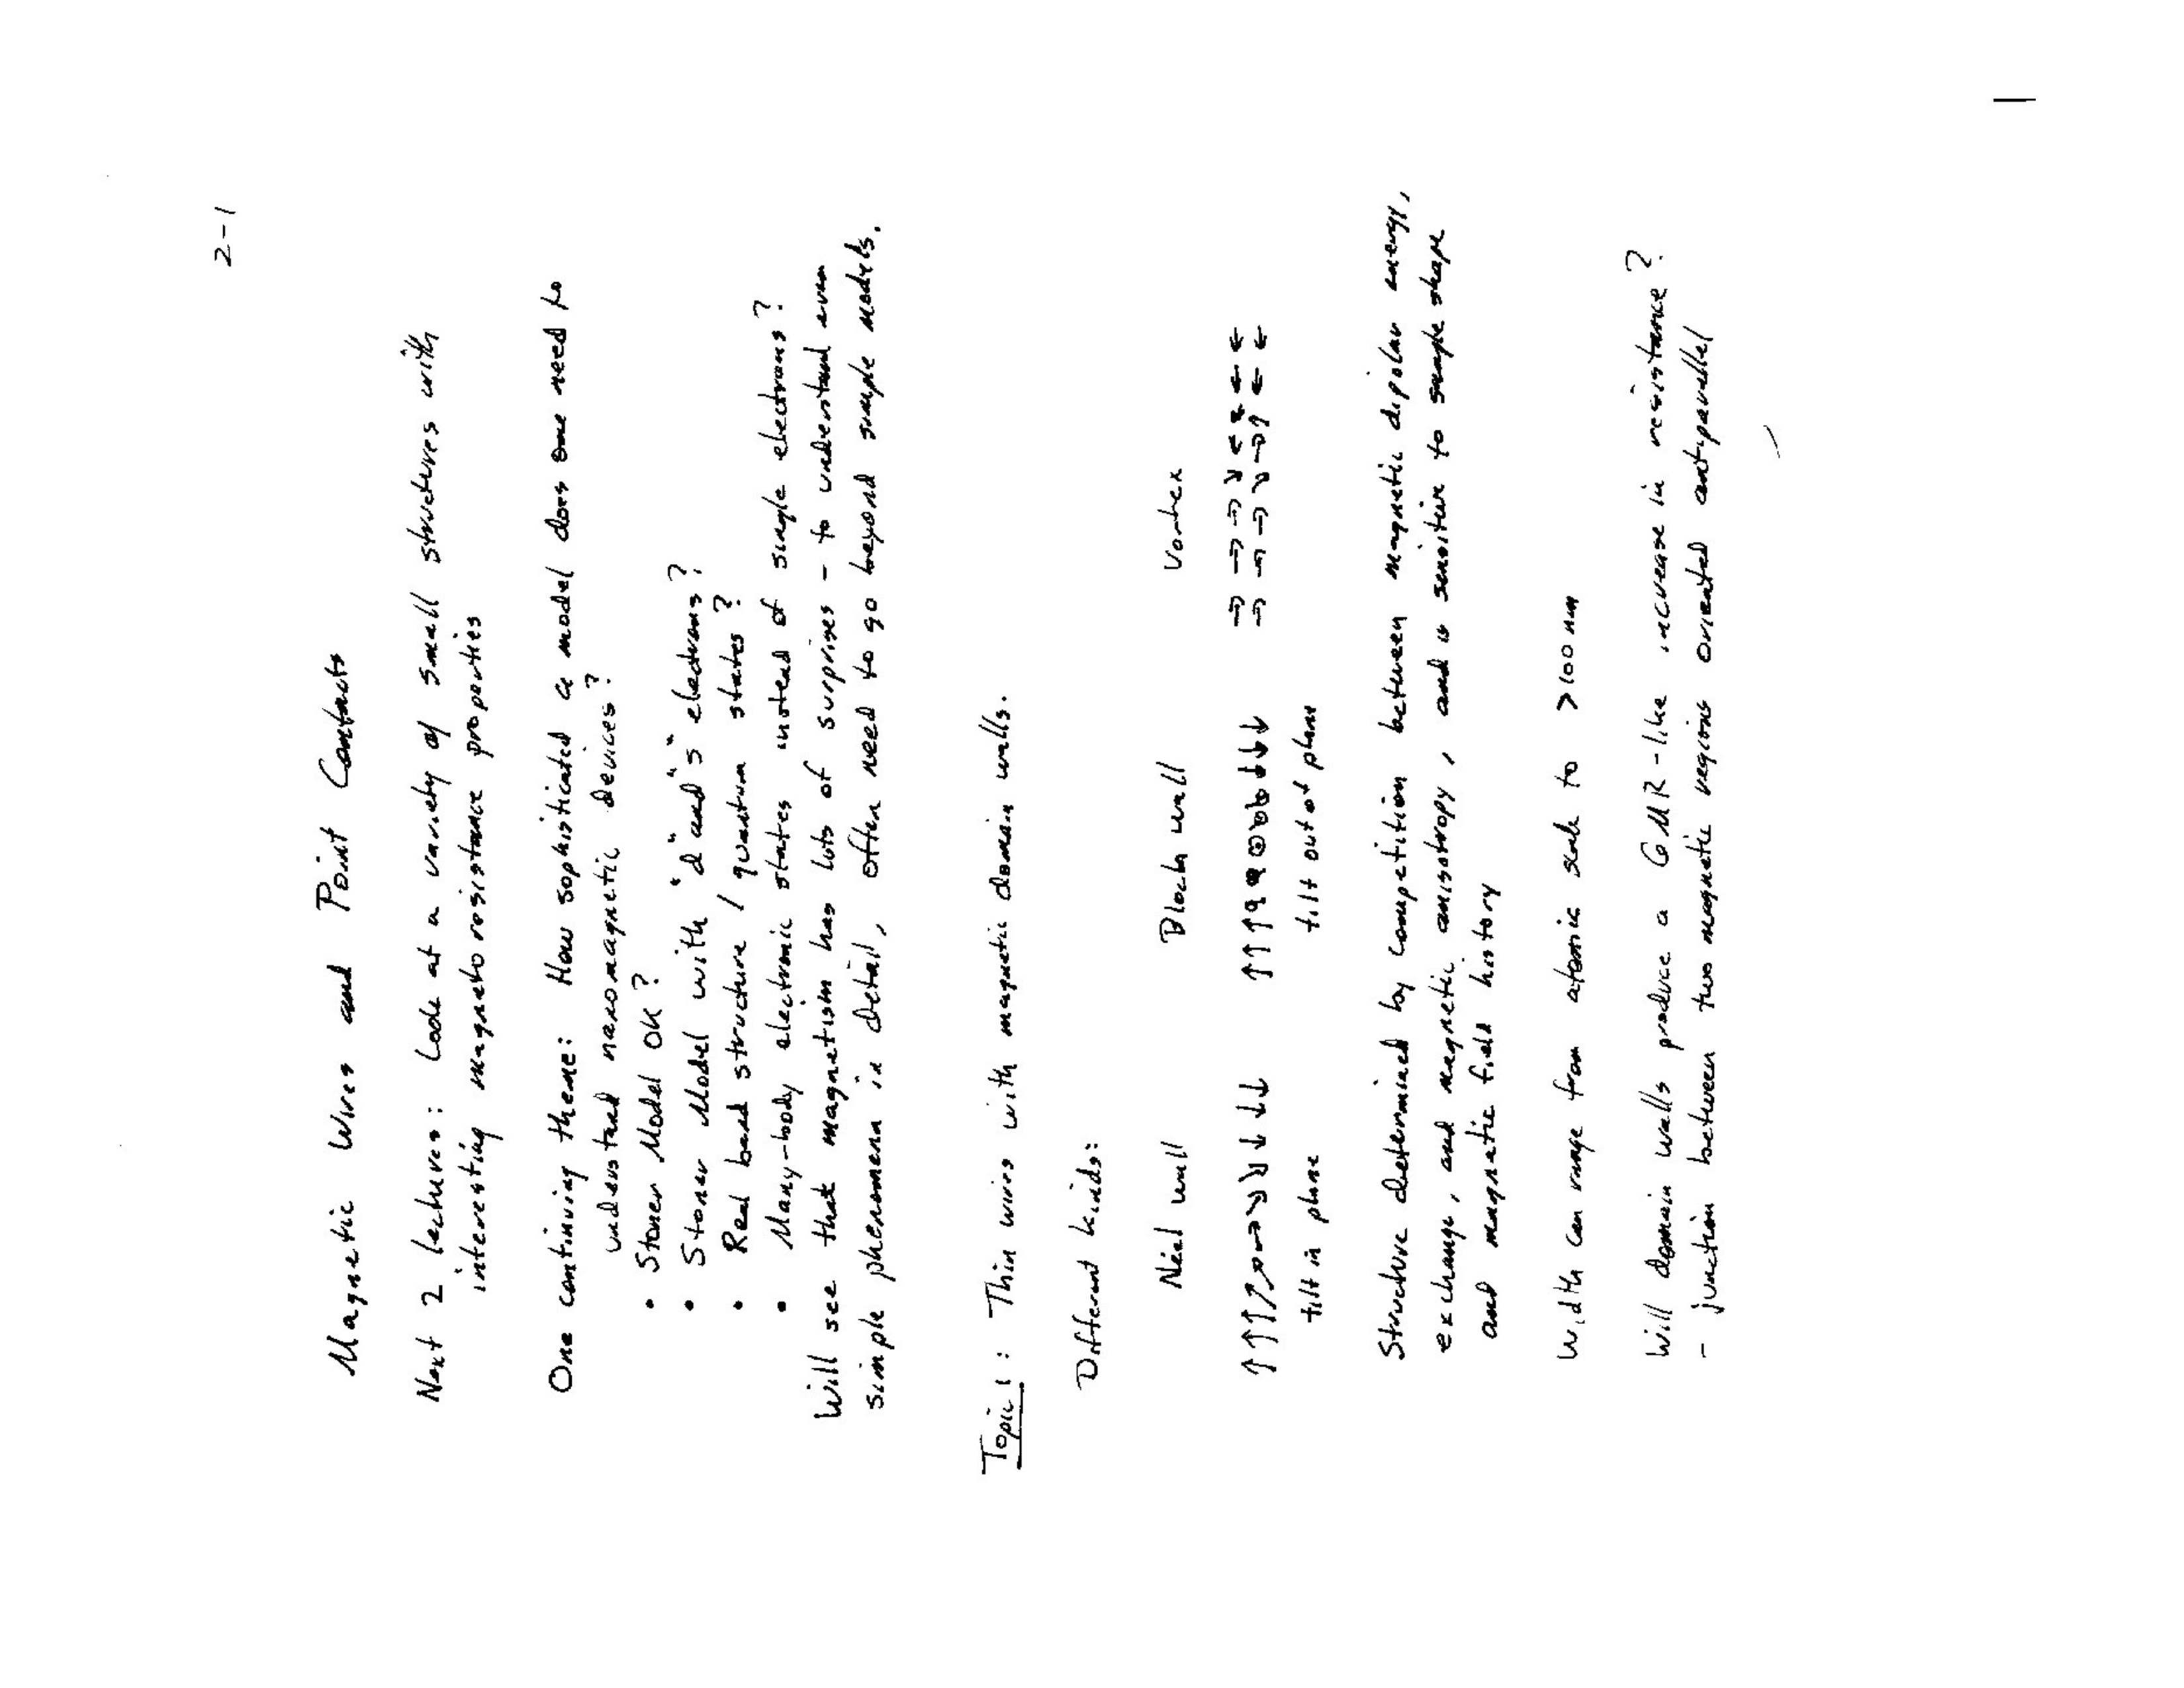 2-1
Magnetic Wires and Point Contacts
Next 2 lectures: Look at a variety of small structures with
interesting magnetoresistance properties
One continuing theme: How sophisticated a model does one need to
understand nanomagnetic devices?
• Stoner Model OK?
• Stoner Model with "d" and "s" electrons?
• Real band structure / quantum states?
• Many-body electronic states instead of single electrons?
Will see that magnetism has lots of surprises - to understand even
simple phenomena in detail, often need to go beyond simple models.
Topic 1: Thin wires with magnetic domain walls.
Different kinds:
Néel wall Bloch wall Vortex
tilt in plane tilt out of plane
Structure determined by competition between magnetic dipolar energy,
exchange, and magnetic anisotropy, and is sensitive to sample shape
and magnetic field history
Width can range from atomic scale to >100 nm
Will domain walls produce a GMR-like increase in resistance?
- junction between two magnetic regions oriented antiparallel